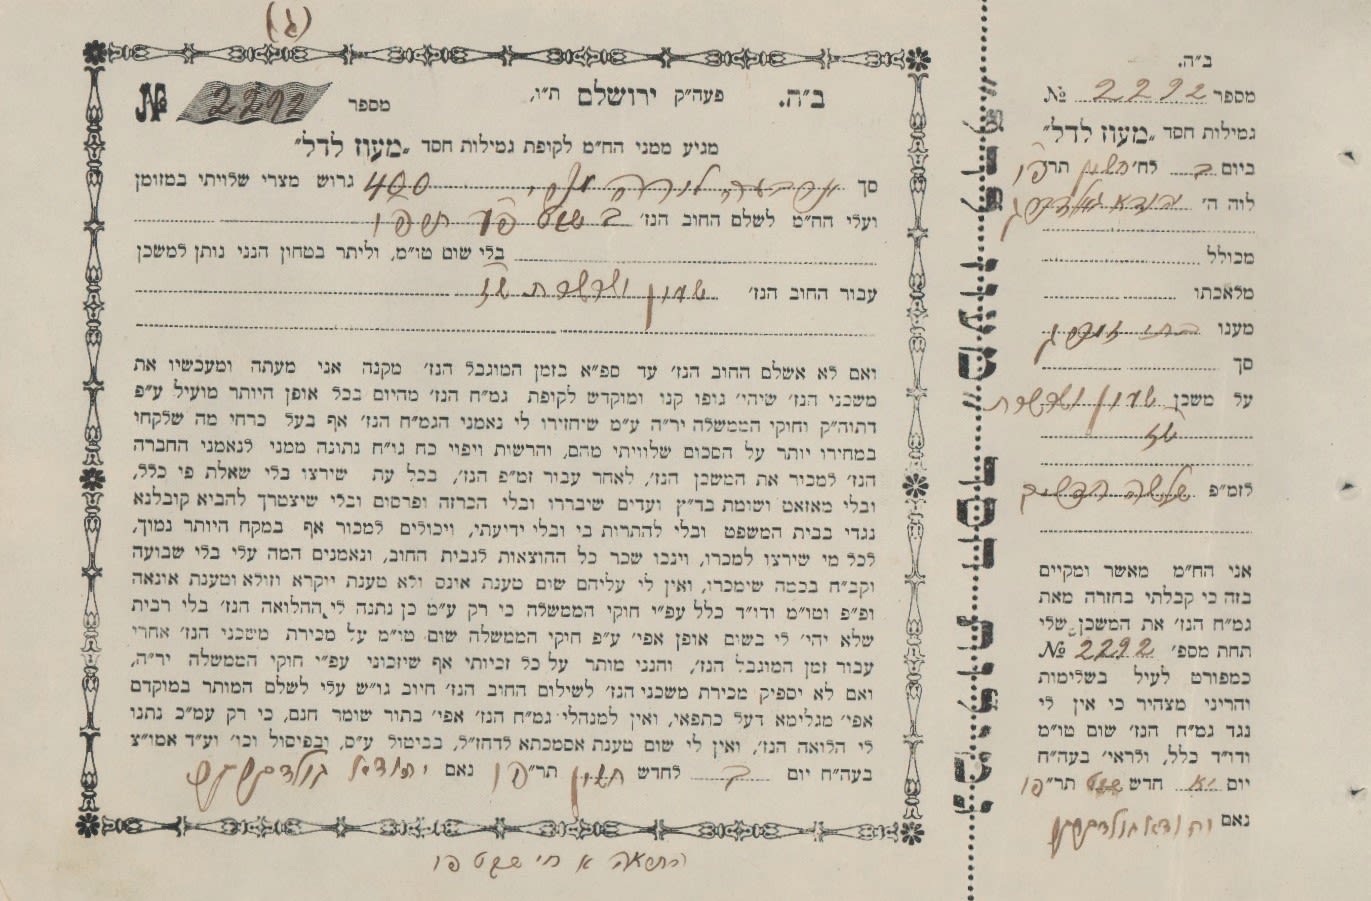 (ג)
ב״ה. פעה״ק ירושלם ת״ו, מספר 2292 №
מגיע ממני הח״מ לקופת גמילות חסד „מעוז לדל״
סך 400 גרוש מצרי שלויתי במזומן
ועלי הח״מ לשלם החוב הנז׳ ב שבט פו
בלי שום טו״מ, וליתר בטחון הנני נותן למשכן
עבור החוב הנז׳ שעון ושרשרת
ואם לא אשלם החוב הנז׳ עד ספ״א בזמן המוגבל הנז׳ מקנה אני מעתה ומעכשיו את
משכני הנז׳ שיהי׳ גופו קנו ומוקדש לקיפת גמ״ח הנז׳ מהיום בכל אופן היותר מועיל ע״פ
דתוה״ק וחוקי הממשלה יר״ה ע״מ שיחזירו לי נאמני הגמ״ח הנז׳ אף בעל כרחי מה שלקחו
במחירו יותר על הסכום שלוויתי מהם, והרשות ויפוי כח גו״ח נתונה ממני לנאמני החברה
הנז׳ למכיר את המשכן הנז׳, לאחר עבור זמ״פ הנז׳, בכל עת שירצו בלי שאלת פי כלל,
ובלי מאזאט ושומת בד״ץ ועדים שיבררו ובלי הכרזה ופרסום ובלי שיצטרך להביא קובלנא
נגדי בבית המשפט ובלי להתרות בי ובלי ידיעתי, ויכולים למכור אף במקח היותר נמוך,
לכל מי שירצו למכרו, וינכו שכר כל ההוצאות לגבית החוב, ונאמנים המה עלי בלי שבועה
וקב״ח בכמה שימכרו, ואין לי עליהם שום טענת אינס ולא טענת יוקרא וזולא וטענת אונאה
ופ״פ וטו״מ ודו״ד כלל עפ״י חוקי הממשלה כי רק ע״מ כן נתנה לי ההלואה הנז׳ בלי רבית
שלא יהי׳ לי בשום אופן אפי׳ ע״פ חוקי הממשלה שום טו״מ על מכירת משכני הנז׳ אחרי
עבור זמן המוגבל הנז׳, והנני מותר על כל זכיותי אף שיזכוני עפ״י חוקי הממשלה יר״ה,
ואם לא יספיק מכירת משכני הנז׳ לשילום החוב הנז׳ חיוב גו״ש עלי לשלם המותר במוקדם
אפי׳ מגלימא דעל כתפאי, ואין למנהלי גמ״ח הנז׳ אפי׳ בתור שומר חנם, כי רק עמ״כ נתנו
לי הלואה הנז׳, ואין לי שום טענת אסמכתא לדחז״ל, בביטול ע״ס, ובפיסול וכו׳ ועד אמו״צ
בעה״ח יום ב לחדש חשון תר״פו נאם יהודא גולדבערג
א חי שבט פו
ב״ה.
מספר 2292 №
גמילות חסד „מעוז לדל״
ביום ב לח׳ חשון תר״פו
לוה ה׳ יהודא גולדבערג
מכולל
מלאכתו
מענו
סך
על משכן שעון ושרשרת
לזמ״פ שלשה חדשים
אני הח״מ מאשר ומקיים
בזה כי קבלתי בחזרה מאת
גמ״ח הנז׳ את המשכן שלי
תחת מספ׳ 2292 №
כמפורט לעיל בשלימות
והריני מצהיר כי אין לי
נגד גמ״ח הנז׳ שום טו״מ
ודו״ד כלל, ולראי׳ בעה״ח
יום יא חדש שבט תר״פו
נאם יהודא גולדבערג